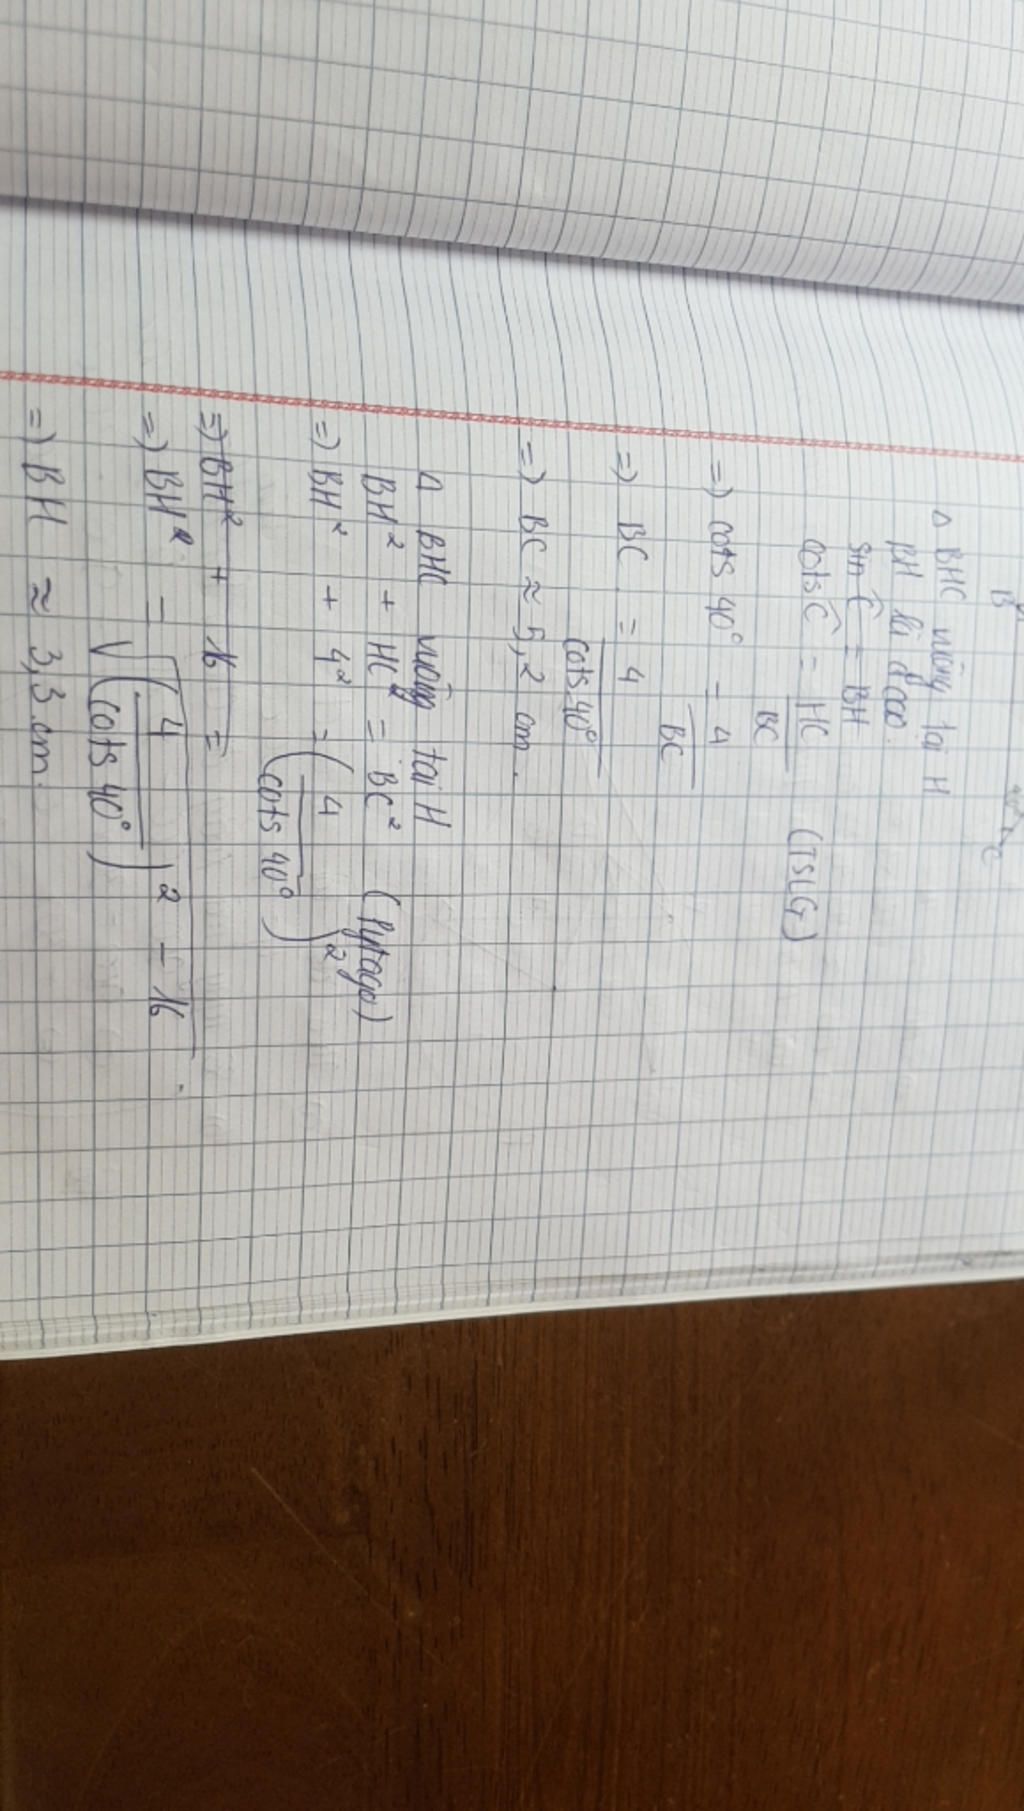 B
40°
C
Δ BHC vuông tại H
BH là đcao.
sin Ĉ = BH
cots Ĉ = HC/BC (TSLG)
=) cots 40° = 4/BC
=) BC = 4/cots 40°
=) BC ≈ 5,2 cm.
Δ BHC vuông tại H
BH² + HC² = BC² (Pytago)
=) BH² + 4² = (4/cots 40°)²
=) BH² + 16 =
=) BH² = √(4/cots 40°)² - 16.
=) BH ≈ 3,3 cm.